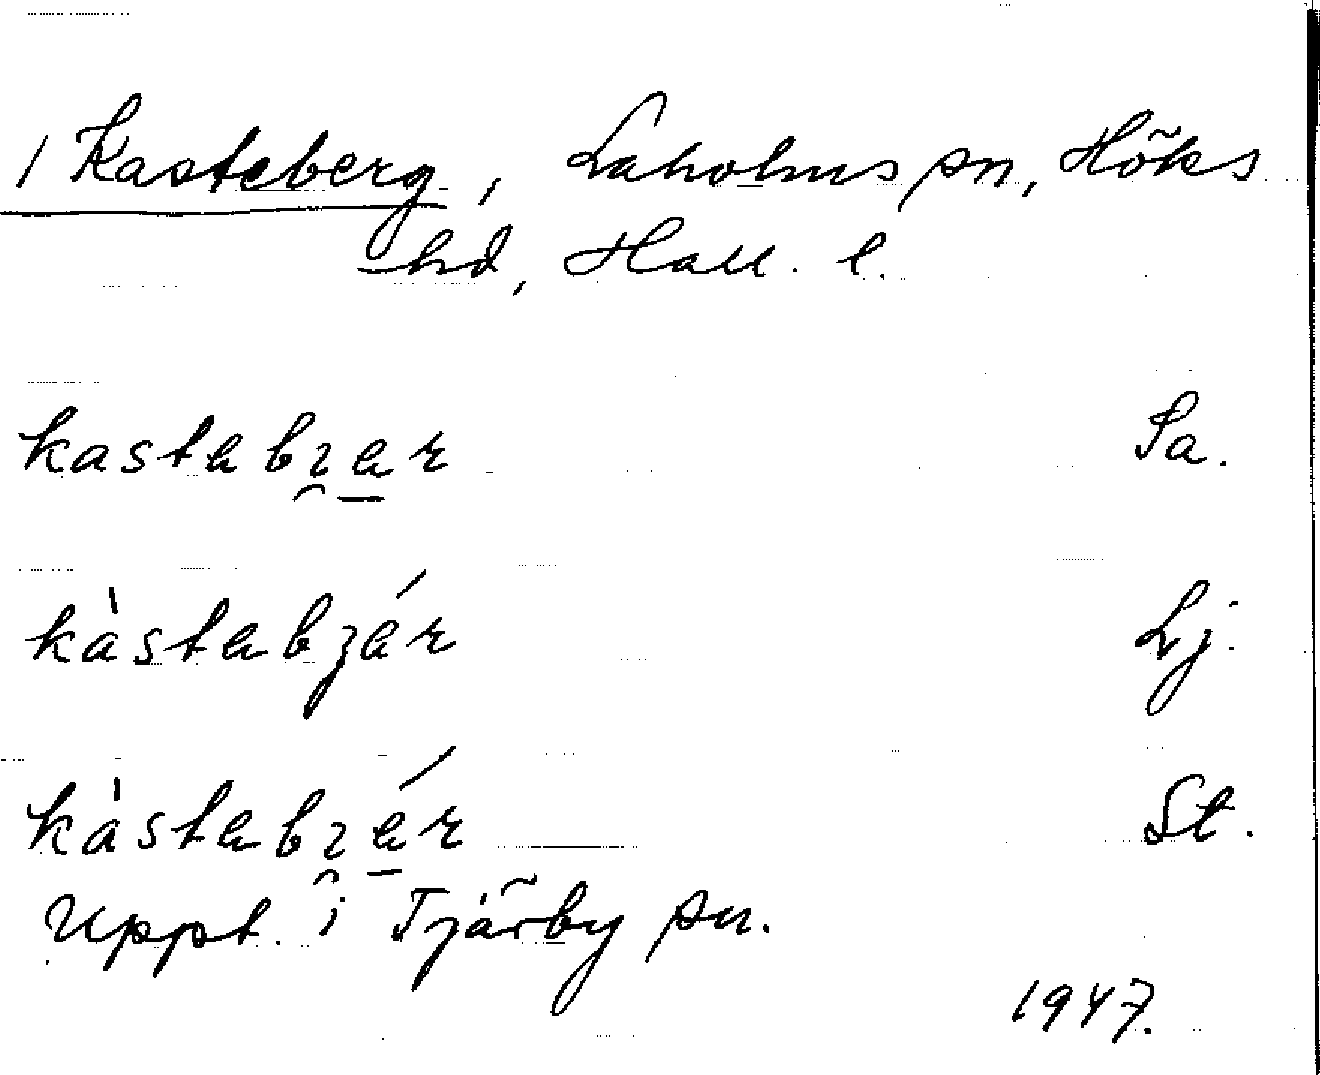 1 Kasteberg, Laholms sn, Höks
hd, Hall. l.
kastabɿar Sa.
kàstabʒár Lj.
kàstabɿár St.
Uppt. i Tjärby sn.
1947.